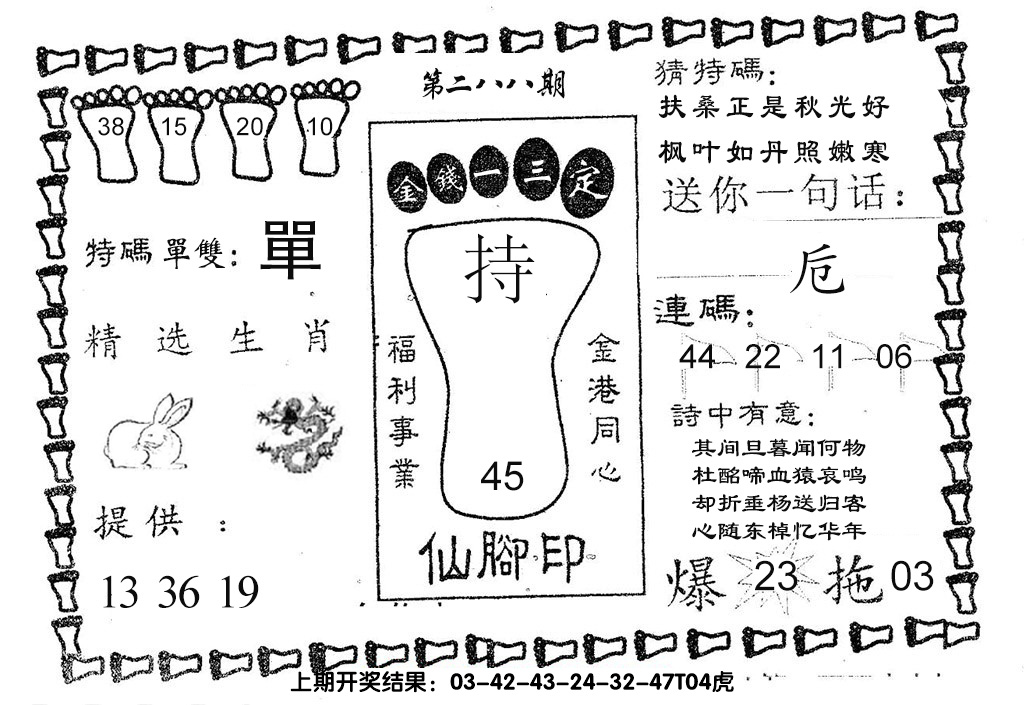 第二八八期
38 15 20 10
特碼單雙：單
精选生肖
提供：
13 36 19
金錢一三定
持
福利事業
金港同心
45
仙腳印
猜特碼：
扶桑正是秋光好
枫叶如丹照嫩寒
送你一句话：
卮
連碼：
44 22 11 06
詩中有意：
其间旦暮闻何物
杜酩啼血猿哀鸣
却折垂杨送归客
心随东棹忆华年
爆 23 拖 03
上期开奖结果：03-42-43-24-32-47T04虎